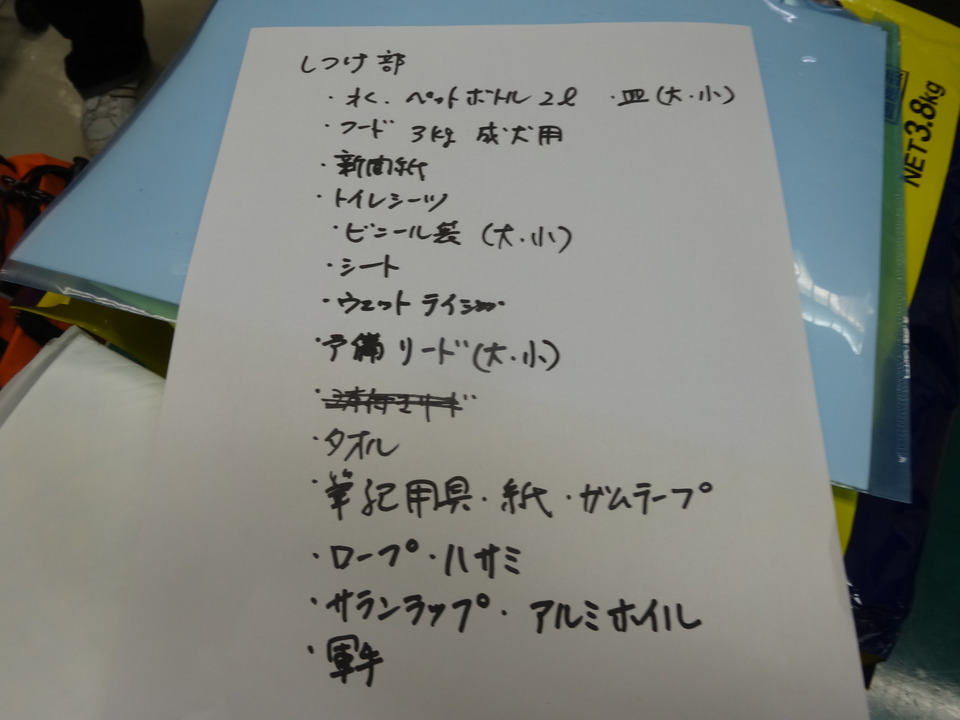 しつけ部
・水. ペットボトル 2ℓ ・皿(大・小)
・フード 3kg 成犬用
・新聞紙
・トイレシーツ
・ビニール袋 (大・小)
・シート
・ウェットテイシュー
・予備 リード(大・小)
・タオル
・筆記用具・紙・ガムテープ
・ロープ・ハサミ
・サランラップ・アルミホイル
・軍手
NET3.8kg